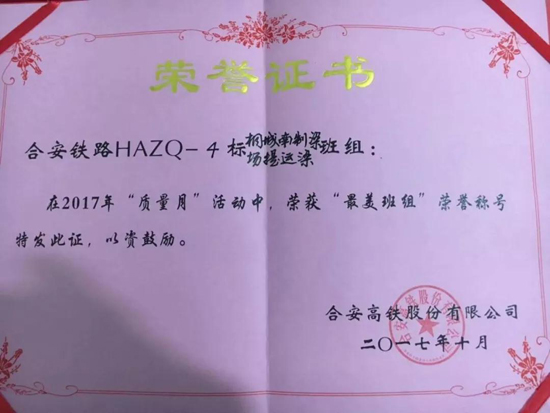 荣誉证书
合安铁路HAZQ-4标桐城南制梁场提运梁班组：
在2017年“质量月”活动中，荣获“最美班组”荣誉称号
特发此证，以资鼓励。
合安高铁股份有限公司
二〇一七年十月